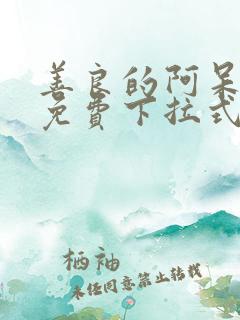 善良的阿呆
免费下拉式
栖袖
未经同意禁止转载